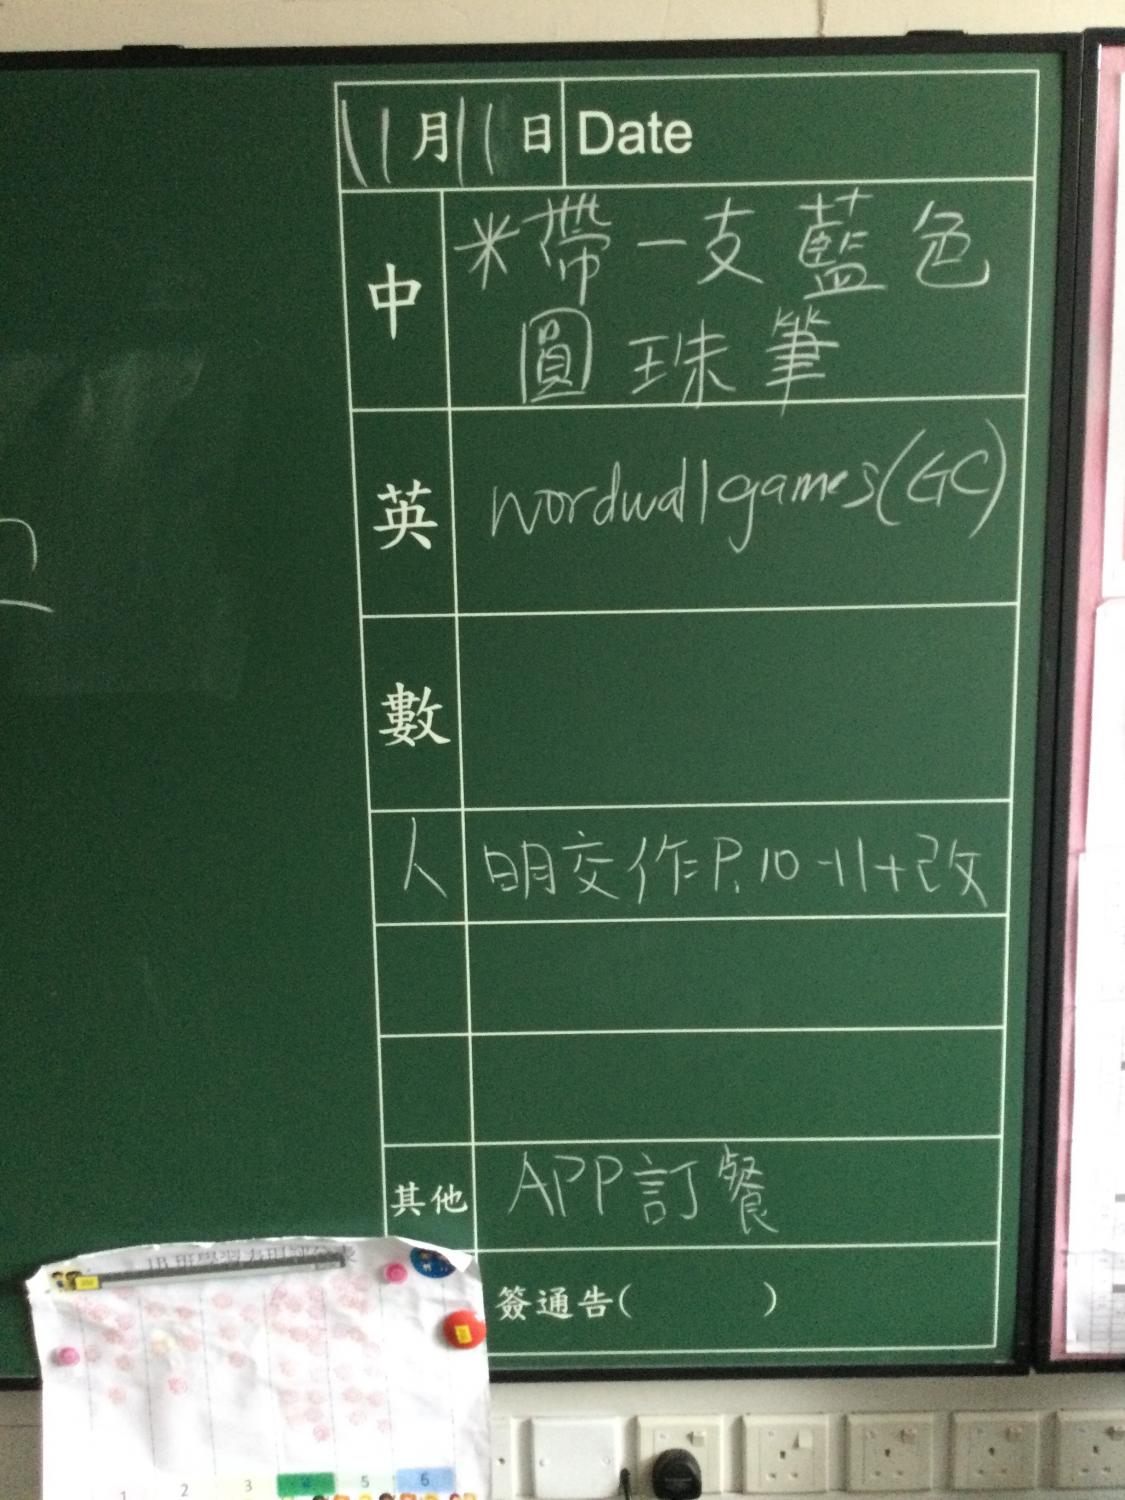 11月11日 Date
中
※帶一支藍色
圓珠筆
英
wordwall games (GC)
數
人 明交作P.10-11+改
其他 APP訂餐
簽通告( )
1 2 3 4 5 6